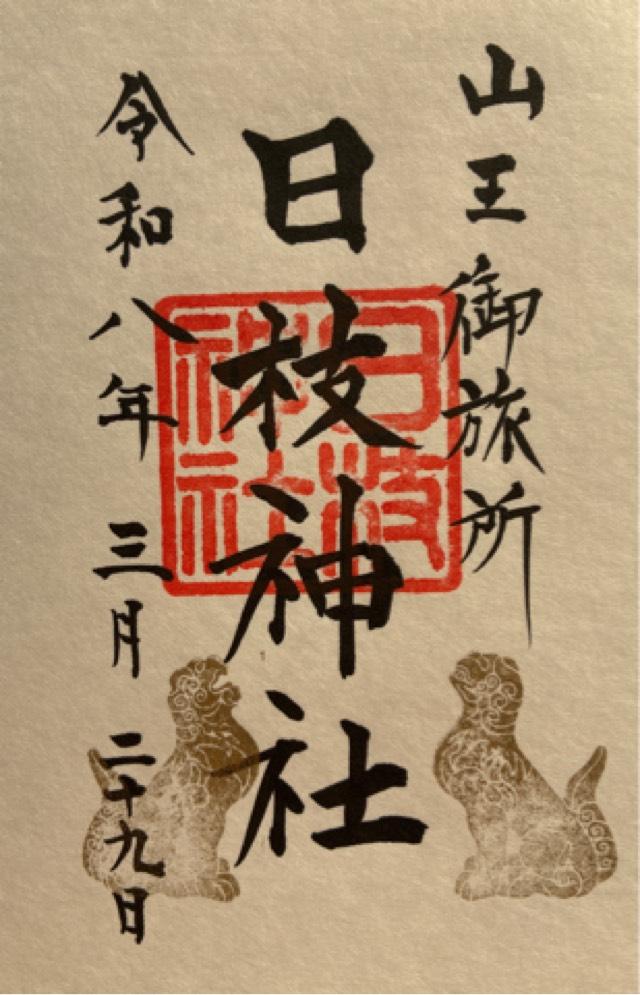 山王御旅所
日枝神社
日枝神社
令和八年三月二十九日